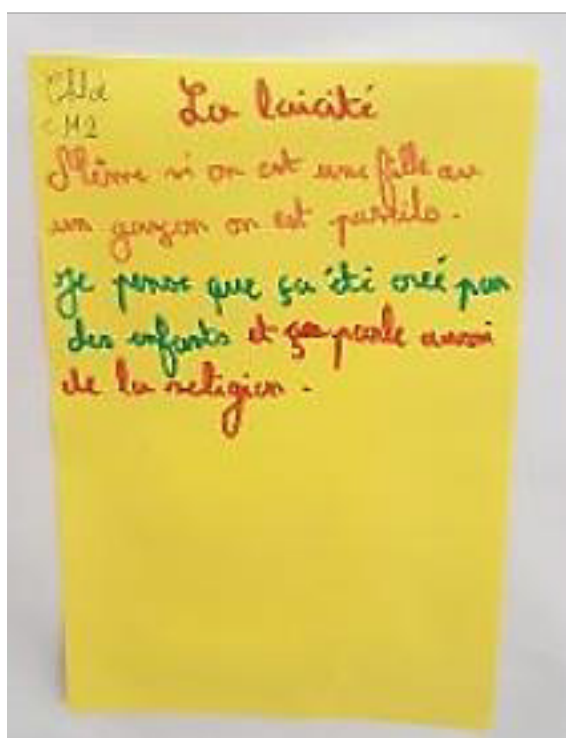 CM2
La laicité
Même si on est une fille ou
un garçon on est pareils.
Je pense que ça été créé par
des enfants et ça parle aussi
de la religion.